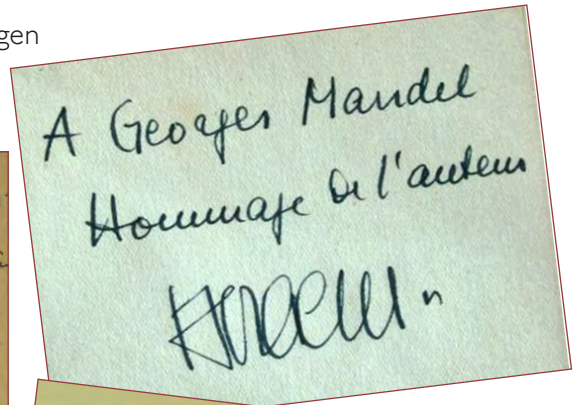 gen
A Georges Mandel
Hommage de l'auteur